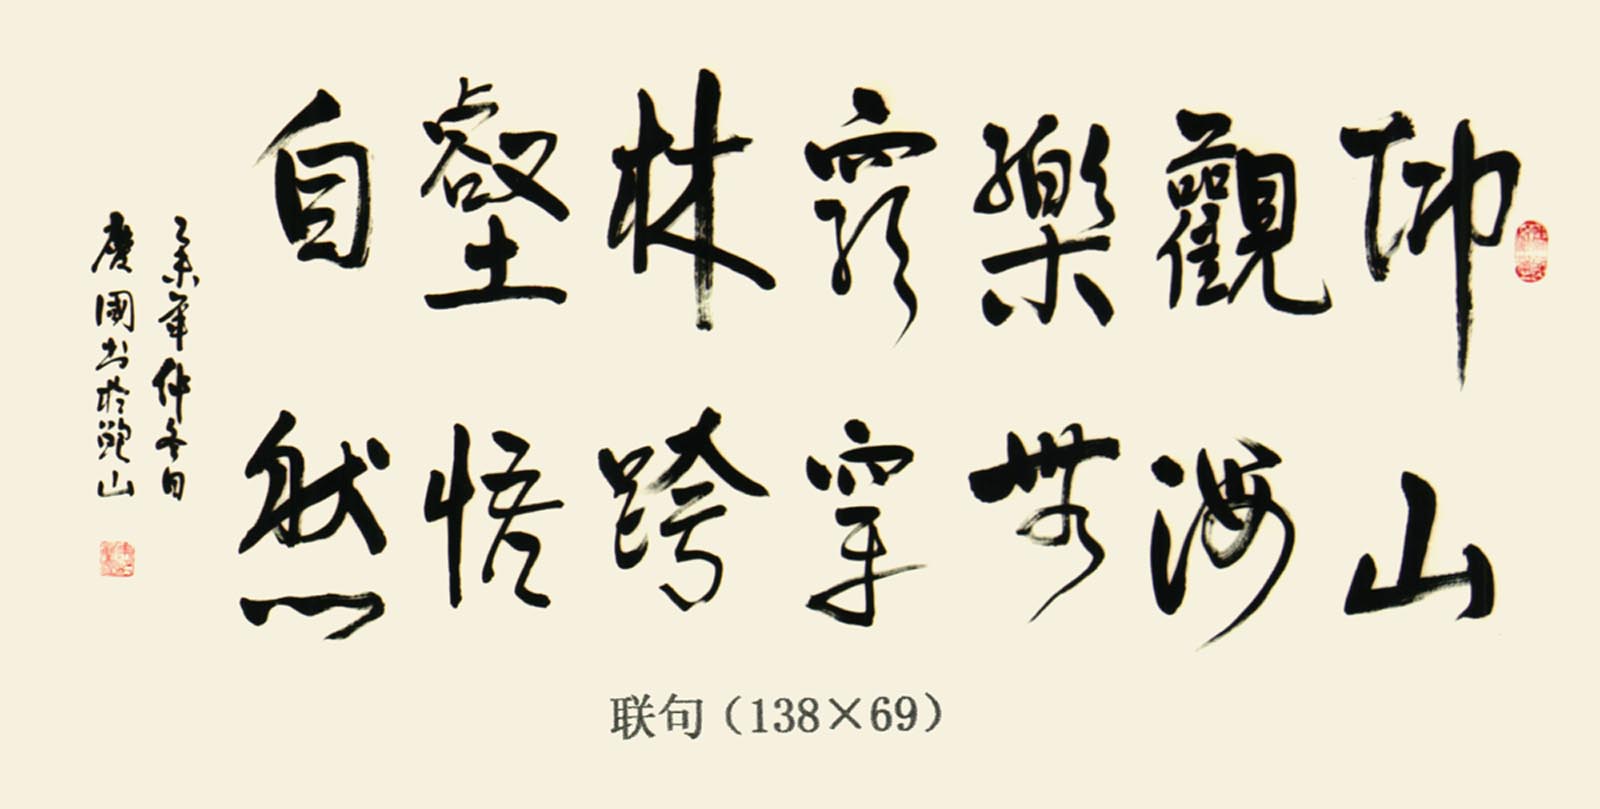 仰山
觀海
樂無
窮穿
林跨
壑悟
自然
乙未年仲冬日
慶國书於鮑山
联句（138×69）